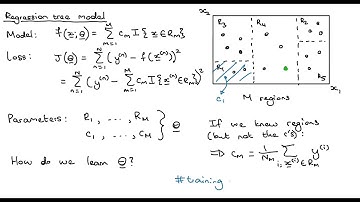 Regression tree model
Model: f(x;θ) = Σ_{m=1}^{M} c_m I{x∈R_m}
Loss: J(θ) = Σ_{n=1}^{N} (y^(n) - f(x^(n)))²
= Σ_{n=1}^{N} (y^(n) - Σ_{m=1}^{M} c_m I{x^(n)∈R_m})²
Parameters: R_1, ..., R_M
c_1, ..., c_M } θ
How do we learn θ?
x_2
R_3
R_4
R_2
R_1
R_5
c_1
x_1
M regions
If we knew regions
(but not the c's):
⇒ c_m = 1/N_m Σ_{i: x^(i)∈R_m} y^(i)
#training